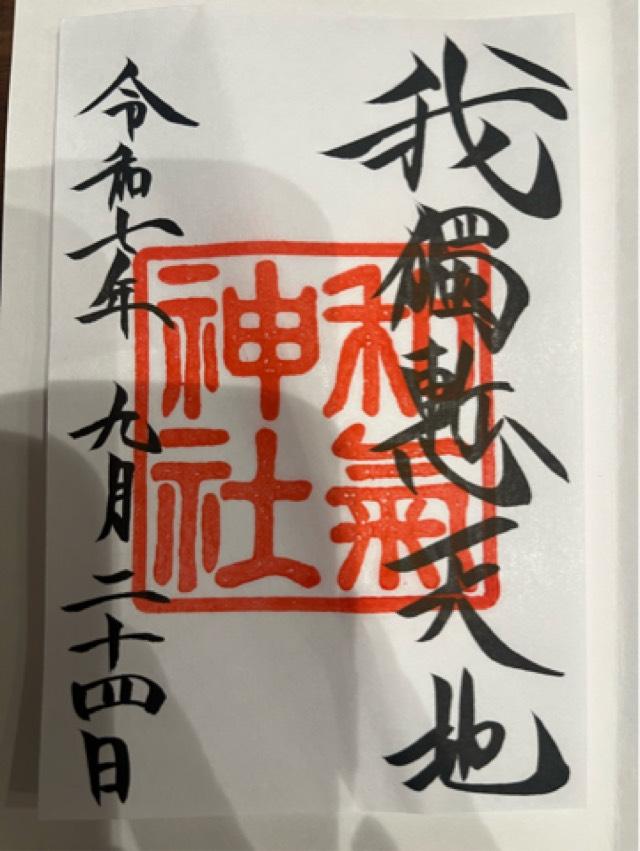 我獨慙天地
和氣
神社
令和七年 九月 二十四日